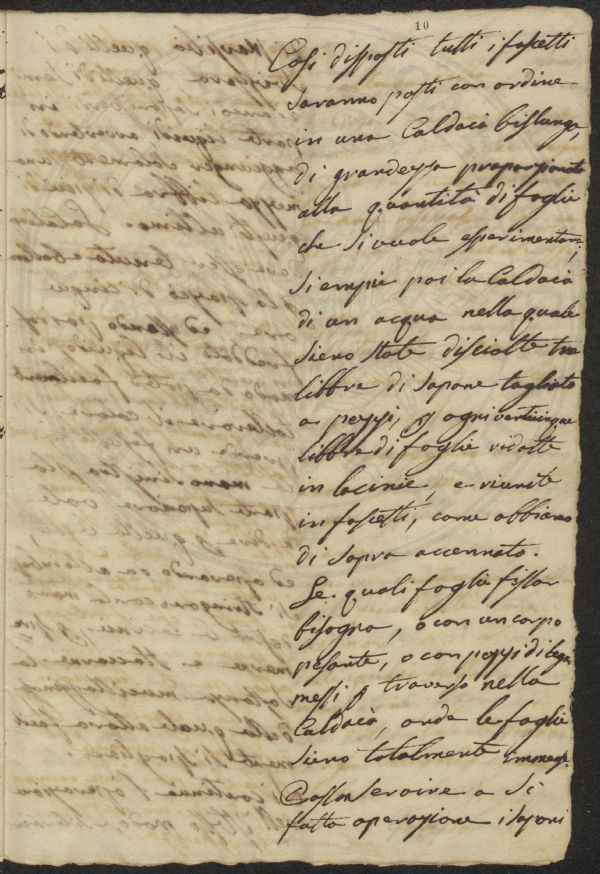 10
Così disposti tutti i fascetti
saranno posti con ordine
in una Caldaia bislunga,
di grandezza proporzionata
alla quantità di foglie
che si vuole esperimentare,
si empie poi la Caldaia
di un acqua nella quale
sieno state disciolte tre
libbre di sapone tagliato
a pezzi, ogni venticinque
libbre di foglie ridotte
in lacinie, e riunite
in fascetti, come abbiamo
di sopra accennato.
Le quali foglie fissar
bisogna, o con un corpo
pesante, o con pezzi di legno
messi a traverso nella
Caldaia, onde le foglie
sieno totalmente immerse.
Posson servire a sì
fatta operazione i saponi